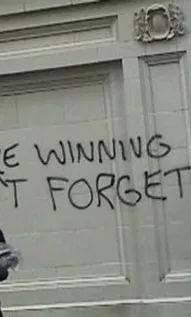 E WINNING
T FORGET